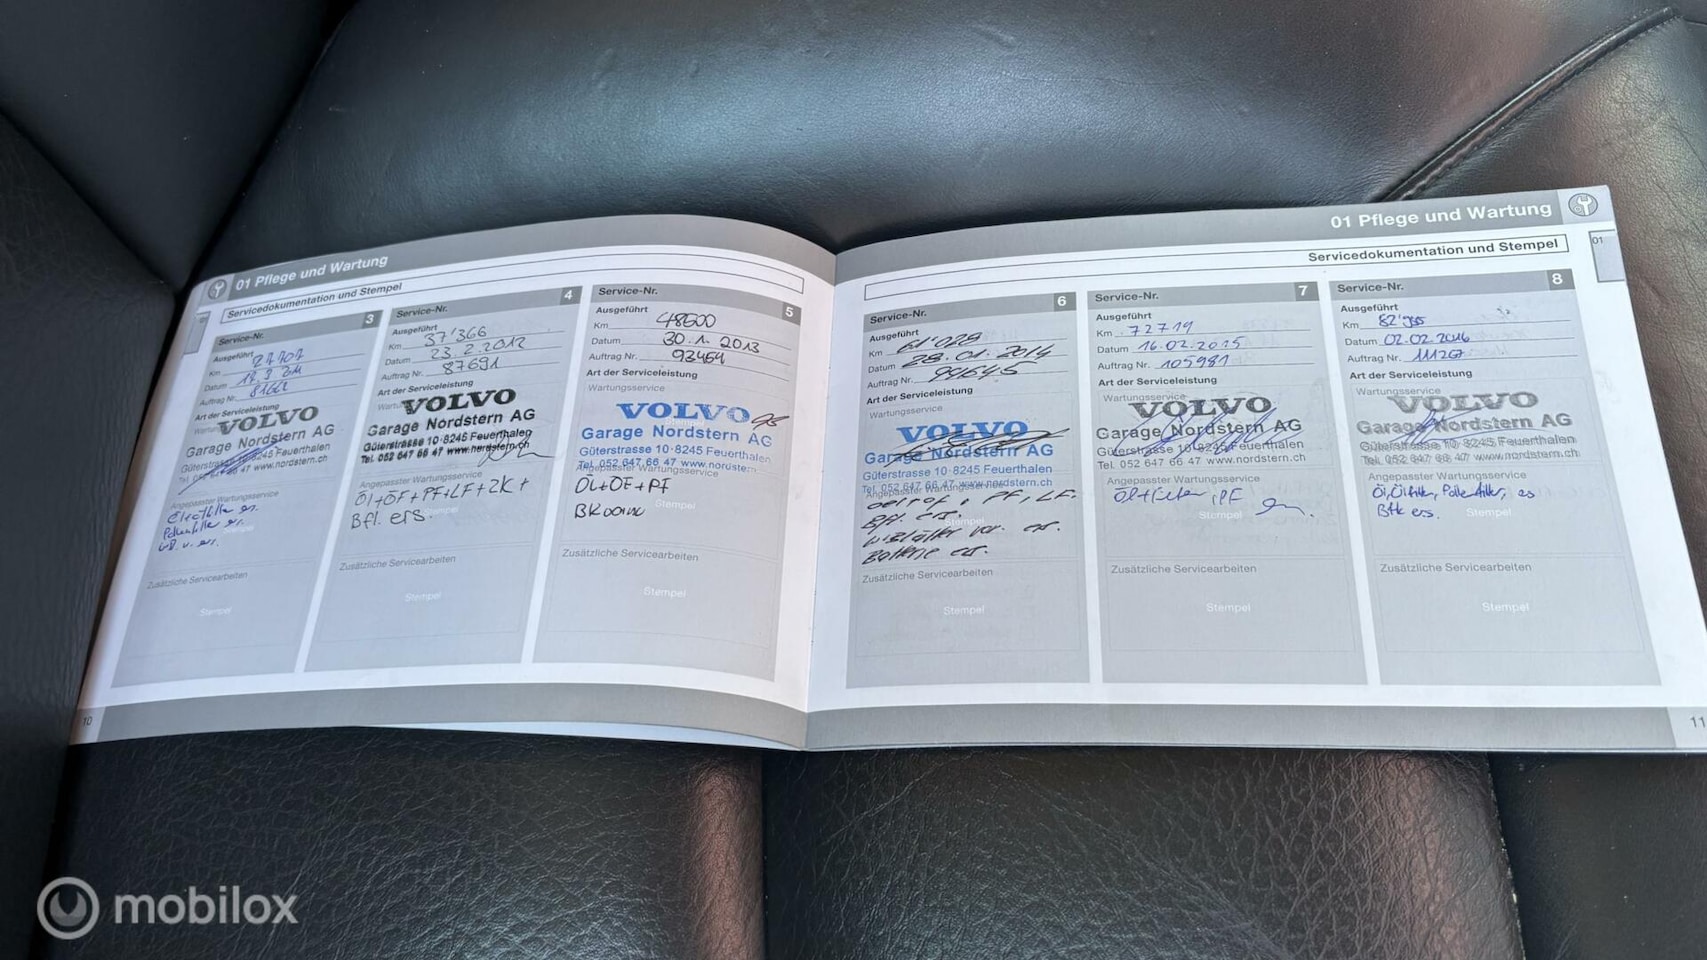 01 Pflege und Wartung
Servicedokumentation und Stempel
01
Service-Nr. 3
Ausgeführt
Km
Datum
Auftrag Nr.
Art der Serviceleistung
VOLVO
Garage Nordstern AG
Güterstrasse 10·8245 Feuerthalen
Tel. 052 647 66 47 www.nordstern.ch
Angepasster Wartungsservice
Zusätzliche Servicearbeiten
Stempel
Service-Nr. 4
Ausgeführt
Km 37'366
Datum 23.2.2012
Auftrag Nr. 87691
Art der Serviceleistung
VOLVO
Garage Nordstern AG
Güterstrasse 10·8245 Feuerthalen
Tel. 052 647 66 47 www.nordstern.ch
Angepasster Wartungsservice
Öl+ÖF+PF+LF+ZK+
Bfl. ers.
Zusätzliche Servicearbeiten
Stempel
Service-Nr. 5
Ausgeführt
Km 48500
Datum 30.1.2013
Auftrag Nr. 93464
Art der Serviceleistung
Wartungsservice
VOLVO
Garage Nordstern AG
Güterstrasse 10·8245 Feuerthalen
Tel. 052 647 66 47 www.nordstern
Angepasster Wartungsservice
Öl+ÖF+PF
Stempel
Zusätzliche Servicearbeiten
Stempel
10
01 Pflege und Wartung
Servicedokumentation und Stempel
01
Service-Nr. 6
Ausgeführt
Km 61'028
Datum 28.01.2014
Auftrag Nr. 99645
Art der Serviceleistung
Wartungsservice
VOLVO
Garage Nordstern AG
Güterstrasse 10·8245 Feuerthalen
Tel. 052 647 66 47 www.nordstern.ch
Angepasster Wartungsservice
PF, LF.
Bfl. ers.
Batterie er.
Zusätzliche Servicearbeiten
Stempel
Service-Nr. 7
Ausgeführt
Km 72719
Datum 16.02.2015
Auftrag Nr. 105981
Art der Serviceleistung
Wartungsservice
VOLVO
Garage Nordstern AG
Güterstrasse 10·8245 Feuerthalen
Tel. 052 647 66 47 www.nordstern.ch
Angepasster Wartungsservice
Öl+Filter, PF
Stempel
Zusätzliche Servicearbeiten
Stempel
Service-Nr. 8
Ausgeführt
Km
Datum 02.02.2016
Auftrag Nr.
Art der Serviceleistung
Wartungsservice
VOLVO
Garage Nordstern AG
Güterstrasse 10·8245 Feuerthalen
Tel. 052 647 66 47 www.nordstern.ch
Angepasster Wartungsservice
Öl, Ölfilter, Pollenfilter, es
Bfk ers.
Stempel
Zusätzliche Servicearbeiten
Stempel
11
mobilox